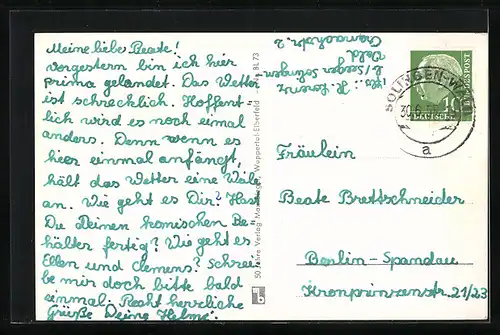 Meine liebe Beate!
vorgestern bin ich hier
prima gelandet. Das Wetter
ist schrecklich. Hoffent-
lich wird es noch einmal
anders. Denn wenn es
hier einmal anfängt,
hält das Wetter eine Weile
an. Wie geht es Dir? Hast
Du Deinen komischen Be-
hälter fertig? Wie geht es
Ellen und Clemens? Schrei-
be mir doch bitte bald
einmal. Recht herzliche
Grüße Deine Helmi.
50 Jahre Verlag Wuppertal-Elberfeld
BL 73
Abs.: H. Lorenz
b/ Seeger Solingen
Wald
SOLINGEN-W
a
DEUTSCHE BUNDESPOST
10
Fräulein
Beate Brettschneider
Berlin-Spandau
Kronprinzenstr. 21/23